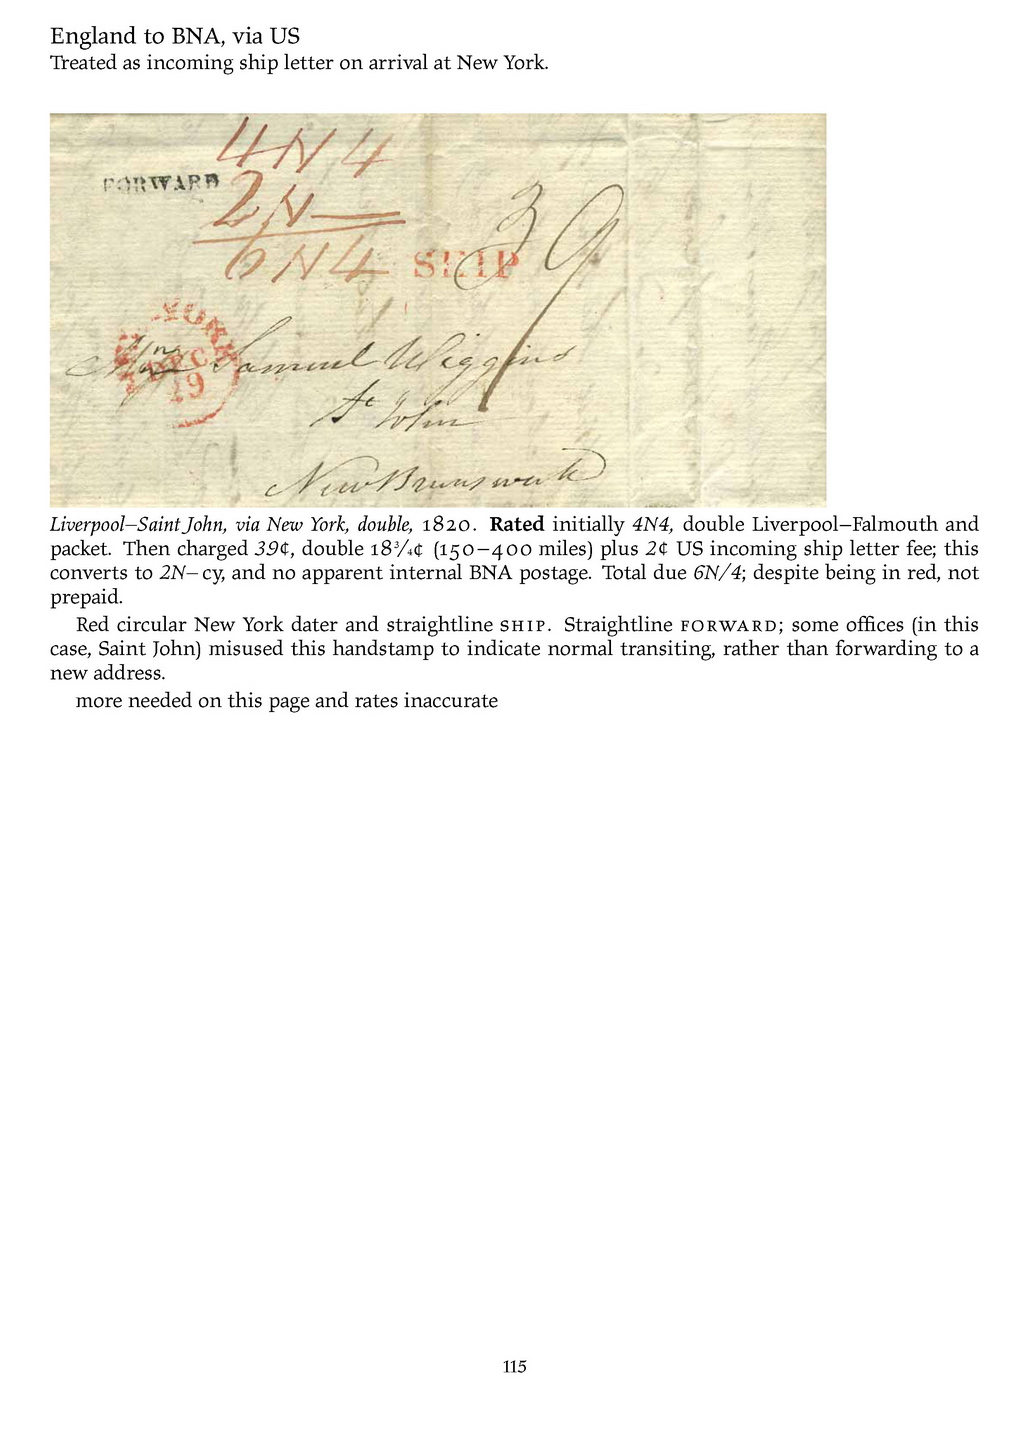 England to BNA, via US
Treated as incoming ship letter on arrival at New York.
4N4
FORWARD
2N—
6N4
SHIP
39
YORK
DEC
19
Samuel Wiggins
St John
New Brunswick
Liverpool–Saint John, via New York, double, 1820. Rated initially 4N4, double Liverpool–Falmouth and
packet. Then charged 39¢, double 18¾¢ (150–400 miles) plus 2¢ US incoming ship letter fee; this
converts to 2N– cy, and no apparent internal BNA postage. Total due 6N/4; despite being in red, not
prepaid.
Red circular New York dater and straightline SHIP. Straightline FORWARD; some offices (in this
case, Saint John) misused this handstamp to indicate normal transiting, rather than forwarding to a
new address.
more needed on this page and rates inaccurate
115